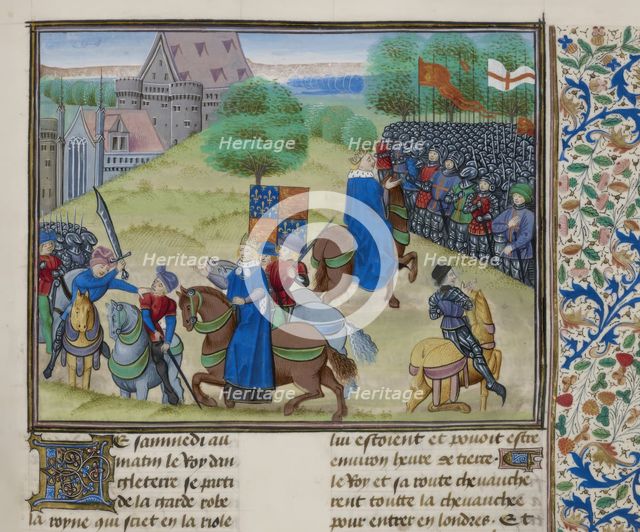 Heritage Heritage
Heritage Heritage
Heritage Heritage
LE sammedi au
matin le Roy dan
gleterre se parti
de la garde robe
la royne qui sciet en la riole
lui estoient et pouoit estre
environ heure de tierce
le Roy et sa route chevauche
rent toutte la chevauchee
pour entrer en londres. Et